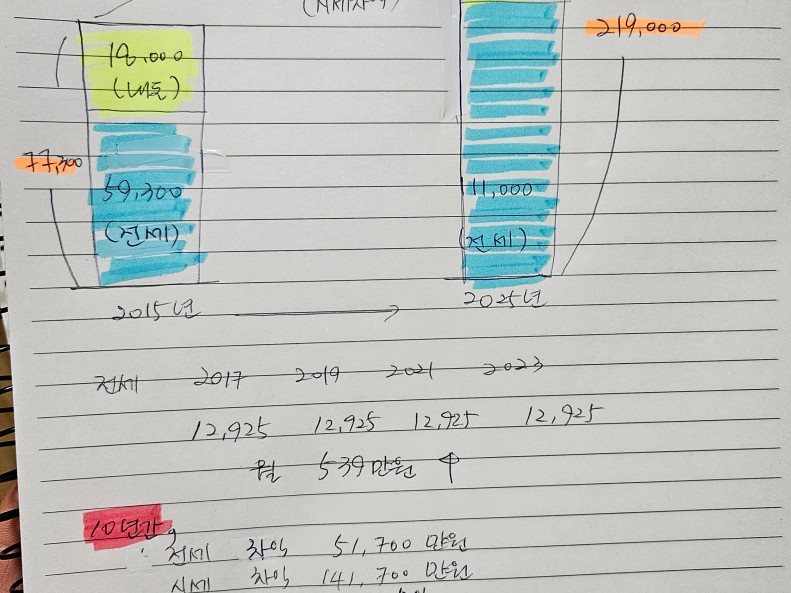 219,000
18,000
(내돈)
77,300
59,300
111,000
(전세)
(전세)
2015년
2025년
전세 2017 2019 2021 2023
12,925 12,925 12,925 12,925
월 539만원 ↑
10년간,
전세 차익 51,700 만원
시세 차익 141,700 만원